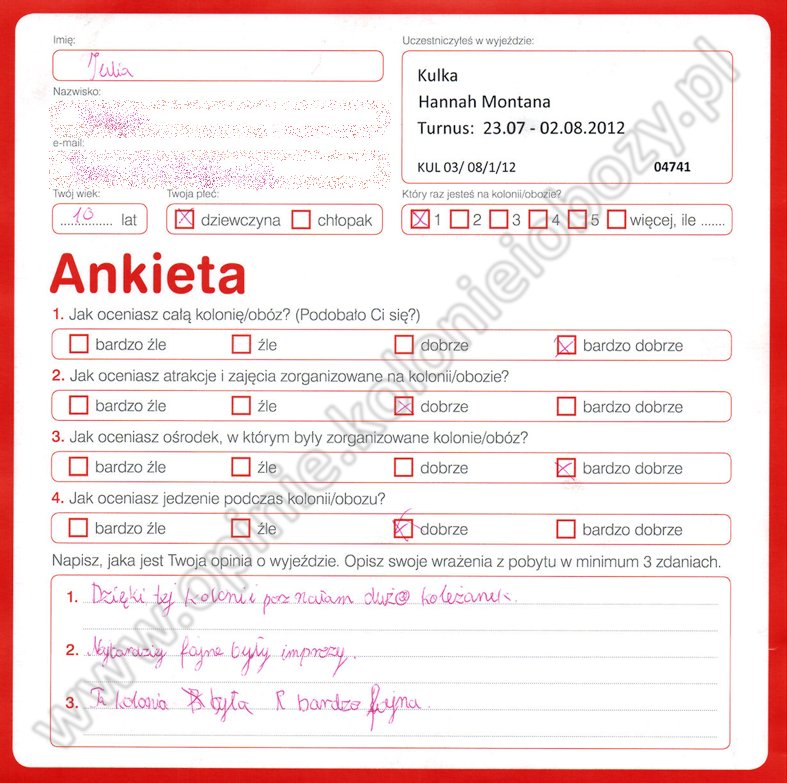 Imię:
Julia
Nazwisko:
e-mail:
Twój wiek:
10 lat
Twoja płeć:
dziewczyna chłopak
Uczestniczyłeś w wyjeździe:
Kulka
Hannah Montana
Turnus: 23.07 - 02.08.2012
KUL 03/ 08/1/12 04741
Który raz jesteś na kolonii/obozie?
1 2 3 4 5 więcej, ile .......
Ankieta
1. Jak oceniasz całą kolonię/obóz? (Podobało Ci się?)
bardzo źle źle dobrze bardzo dobrze
2. Jak oceniasz atrakcje i zajęcia zorganizowane na kolonii/obozie?
bardzo źle źle dobrze bardzo dobrze
3. Jak oceniasz ośrodek, w którym były zorganizowane kolonie/obóz?
bardzo źle źle dobrze bardzo dobrze
4. Jak oceniasz jedzenie podczas kolonii/obozu?
bardzo źle źle dobrze bardzo dobrze
Napisz, jaka jest Twoja opinia o wyjeździe. Opisz swoje wrażenia z pobytu w minimum 3 zdaniach.
1. Dzięki tej kolonii poznałam dużo koleżanek.
2. Najbardziej fajne były imprezy.
3. Ta kolonia była bardzo fajna.
www.opinie.kolonieiobozy.pl